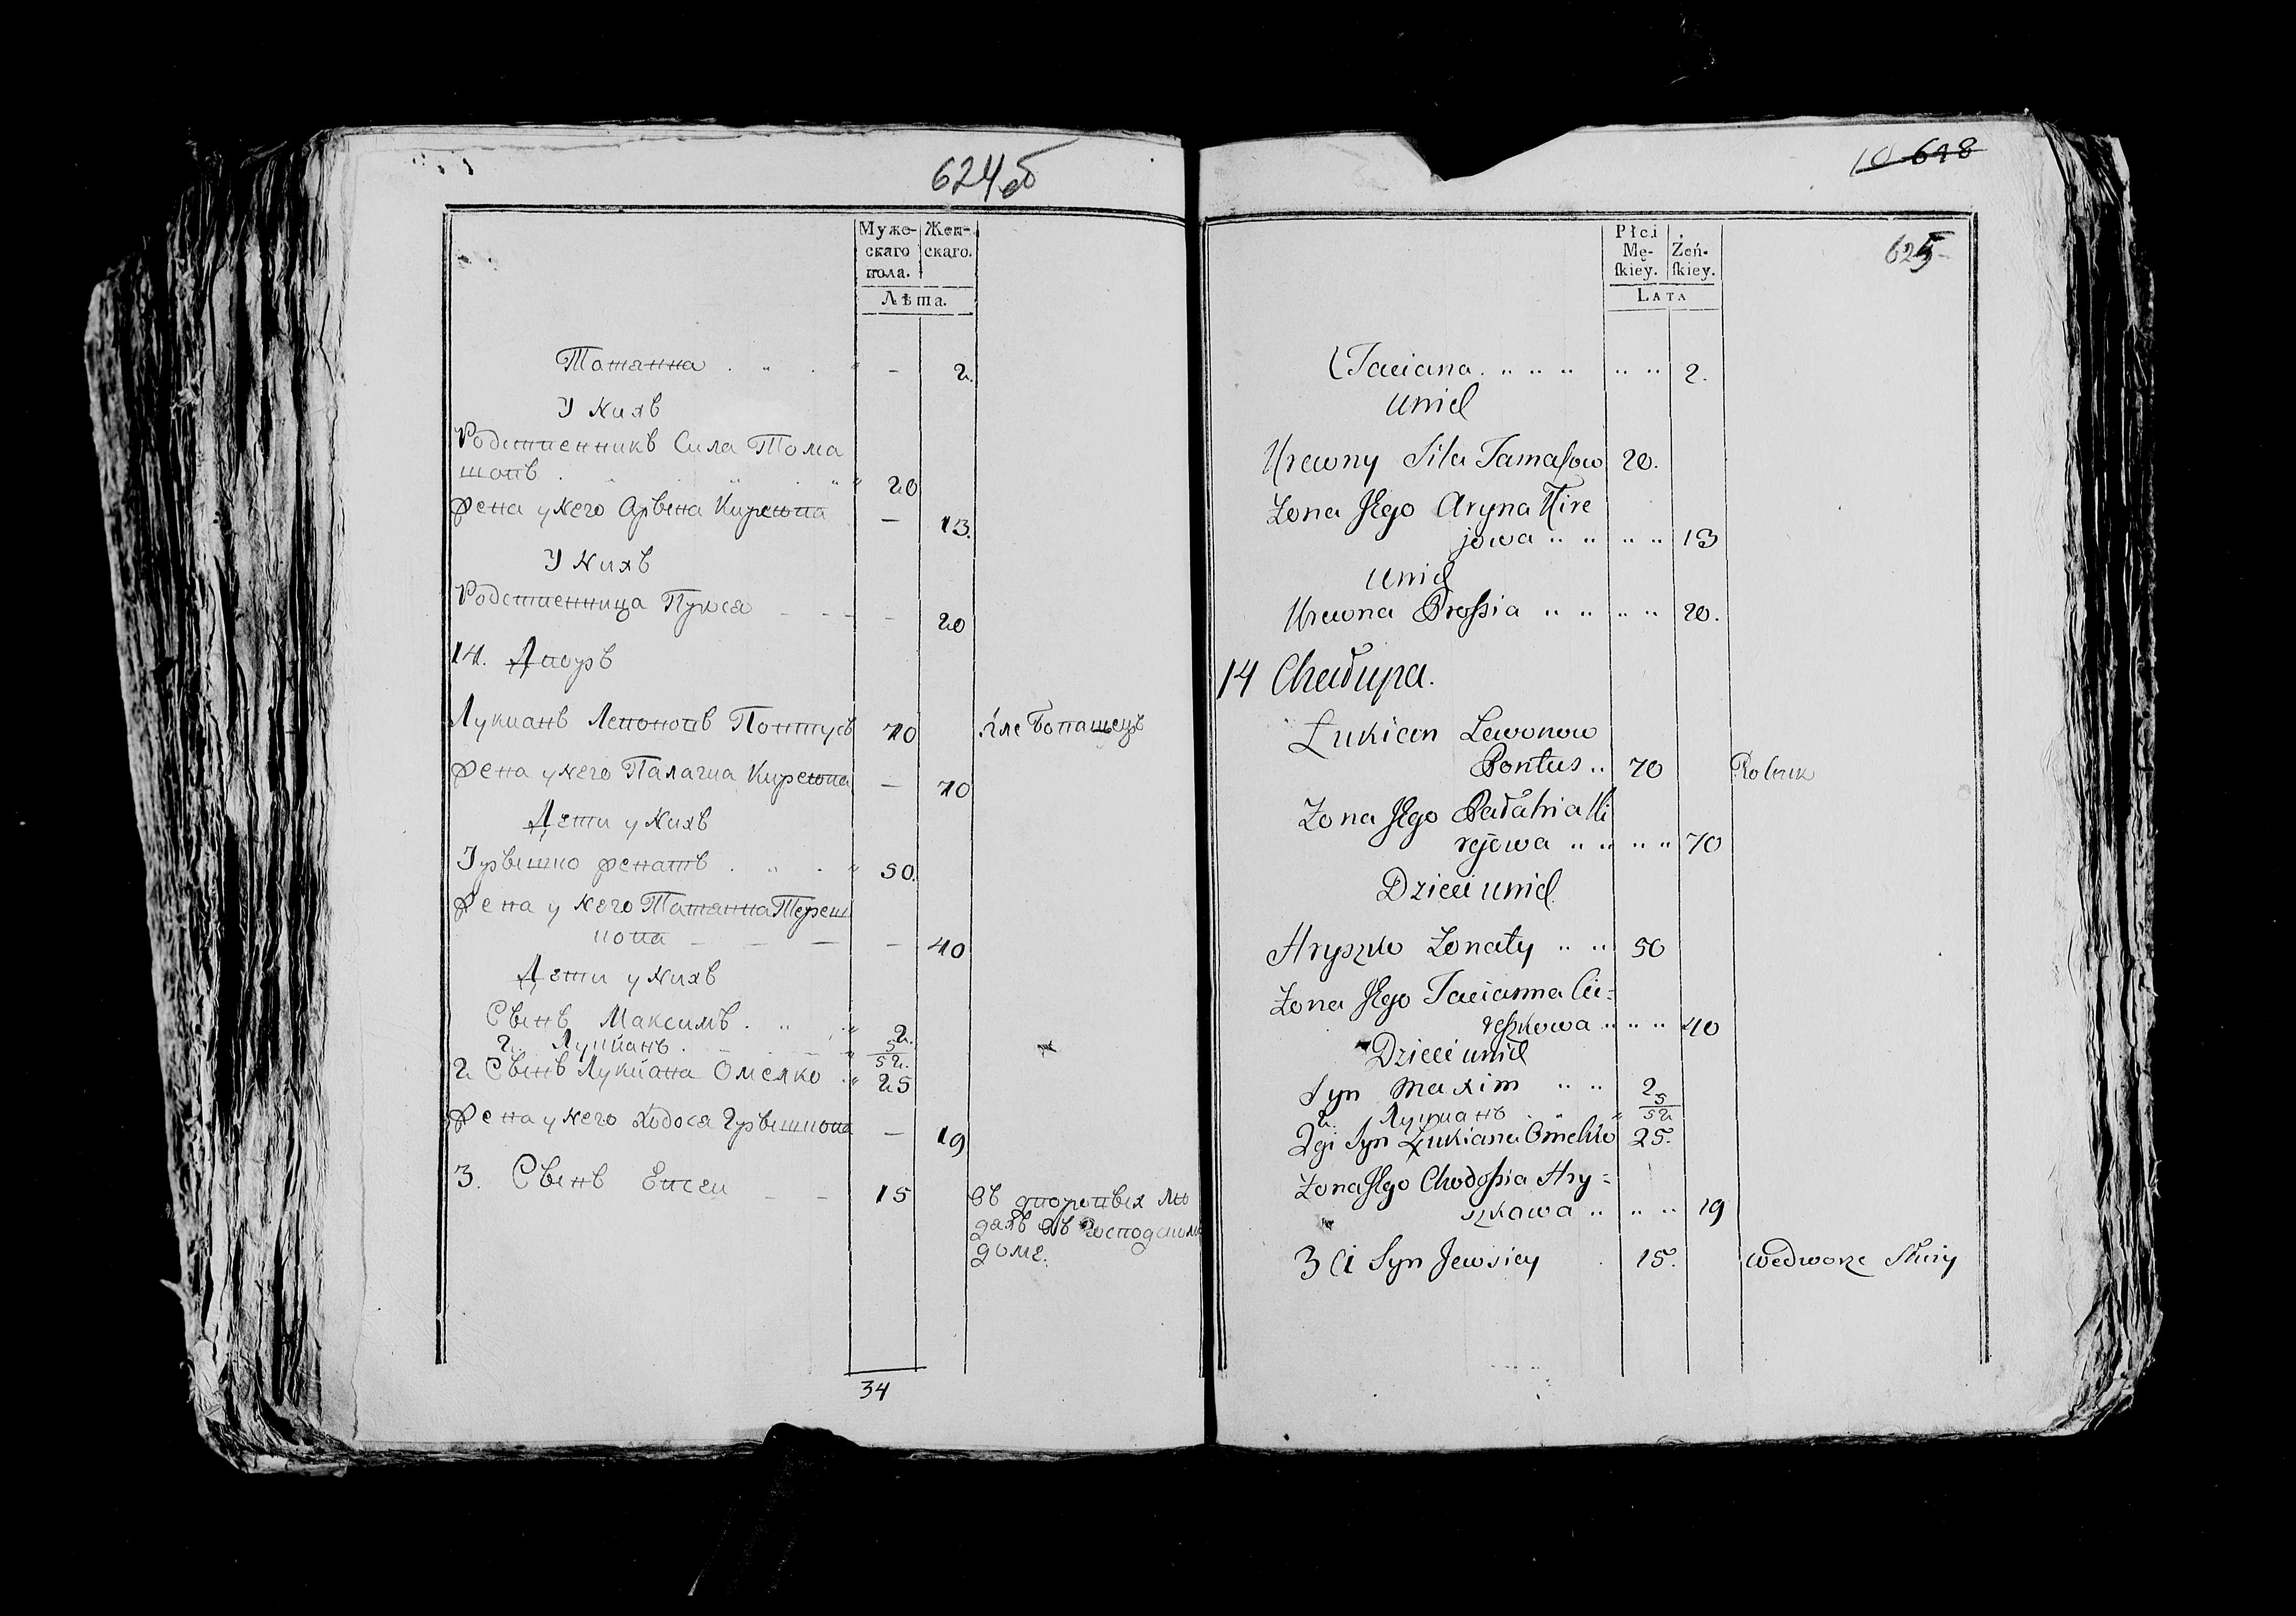 624об
Муже-
скаго
пола.
Жен-
скаго.
Лѣта.
Татянна . „ . „ - 2.
У нихъ
Родственникъ Сила Тома
шовъ . „ „ 20
Жена у него Арына Киреива - 13.
У нихъ
Родственница Пукся - - - 20
14. Двоуръ
Лукианъ Левоновъ Понтусъ 70 хлебопашецъ
Жена у него Палагиа Киреива - 70
Дети у нихъ
Грышко женатъ . „ . „ 50.
Жена у него Татянна Тереш
кова - - - - 40
Дети у нихъ
Сынъ Максимъ . „ „ 2.
2. Лукианъ . „ 5
52.
2 Сынъ Лукиана Омелко „ 25
Жена у него Ходося Грышкова - 19
3. Сынъ Евсеи - - 15 въ дворовых лю
дяхъ въ господском
доме.
34
10 648
625
Płci
Mę-
ſkiey.
Żeń-
ſkiey.
LATA
Taciana . „ „ „ „ „ 2.
Unich
Krewny Siła Tamaſow 20.
Żona Jego Aryna Kire
jowa „ „ „ „ 13
Unich
Krewna Proſsia „ „ „ „ 20.
14 Chałupa.
Łukian Lewonow
Pontus „ 70 Rolnik
Żona Jego Pałahia Ki
rejowa „ „ „ „ 70
Dzieci unich
Hryszko Żonaty „ „ 50
Żona Jego Tacianna Cie=
reſzkowa „ „ „ 40
Dzieci unich
Syn Maxim „ „ 2
2. Лукианъ „ 5
52
2gi Syn Łukiana Omelko 25.
Żona Jego Chodoſsia Hry=
szkowa „ „ „ 19
3ci Syn Jewsiey . 15. wedworze Służy